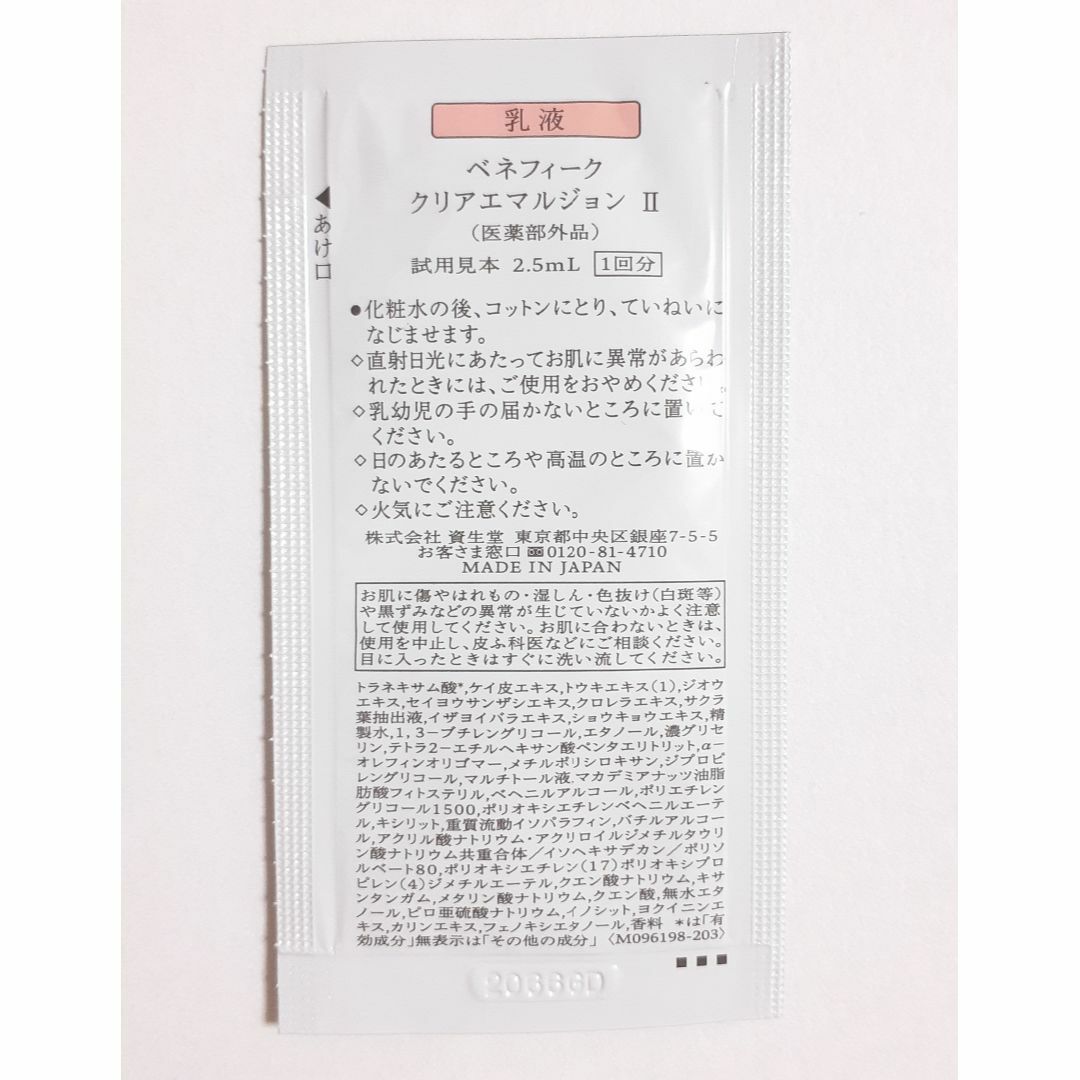 乳液
ベネフィーク
クリアエマルジョン Ⅱ
(医薬部外品)
試用見本 2.5mL 1回分
◀あけ口
●化粧水の後、コットンにとり、ていねいに
なじませます。
◇直射日光にあたってお肌に異常があらわ
れたときには、ご使用をおやめください。
◇乳幼児の手の届かないところに置いて
ください。
◇日のあたるところや高温のところに置か
ないでください。
◇火気にご注意ください。
株式会社 資生堂 東京都中央区銀座7-5-5
お客さま窓口 0120-81-4710
MADE IN JAPAN
お肌に傷やはれもの・湿しん・色抜け(白斑等)
や黒ずみなどの異常が生じていないかよく注意
して使用してください。お肌に合わないときは、
使用を中止し、皮ふ科医などにご相談ください。
目に入ったときはすぐに洗い流してください。
トラネキサム酸*,ケイ皮エキス,トウキエキス(1),ジオウ
エキス,セイヨウサンザシエキス,クロレラエキス,サクラ
葉抽出液,イザヨイバラエキス,ショウキョウエキス,精
製水,1,3-ブチレングリコール,エタノール,濃グリセ
リン,テトラ2-エチルヘキサン酸ペンタエリトリット,α-
オレフィンオリゴマー,メチルポリシロキサン,ジプロピ
レングリコール,マルチトール液,マカデミアナッツ油脂
肪酸フィトステリル,ベヘニルアルコール,ポリエチレン
グリコール1500,ポリオキシエチレンベヘニルエーテ
ル,キシリット,重質流動イソパラフィン,バチルアルコー
ル,アクリル酸ナトリウム・アクリロイルジメチルタウリ
ン酸ナトリウム共重合体/イソヘキサデカン/ポリソ
ルベート80,ポリオキシエチレン(17)ポリオキシプロ
ピレン(4)ジメチルエーテル,クエン酸ナトリウム,キサ
ンタンガム,メタリン酸ナトリウム,クエン酸,無水エタ
ノール,ピロ亜硫酸ナトリウム,イノシット,ヨクイニンエ
キス,カリンエキス,フェノキシエタノール,香料 *は「有
効成分」無表示は「その他の成分」〈M096198-203〉
20336D